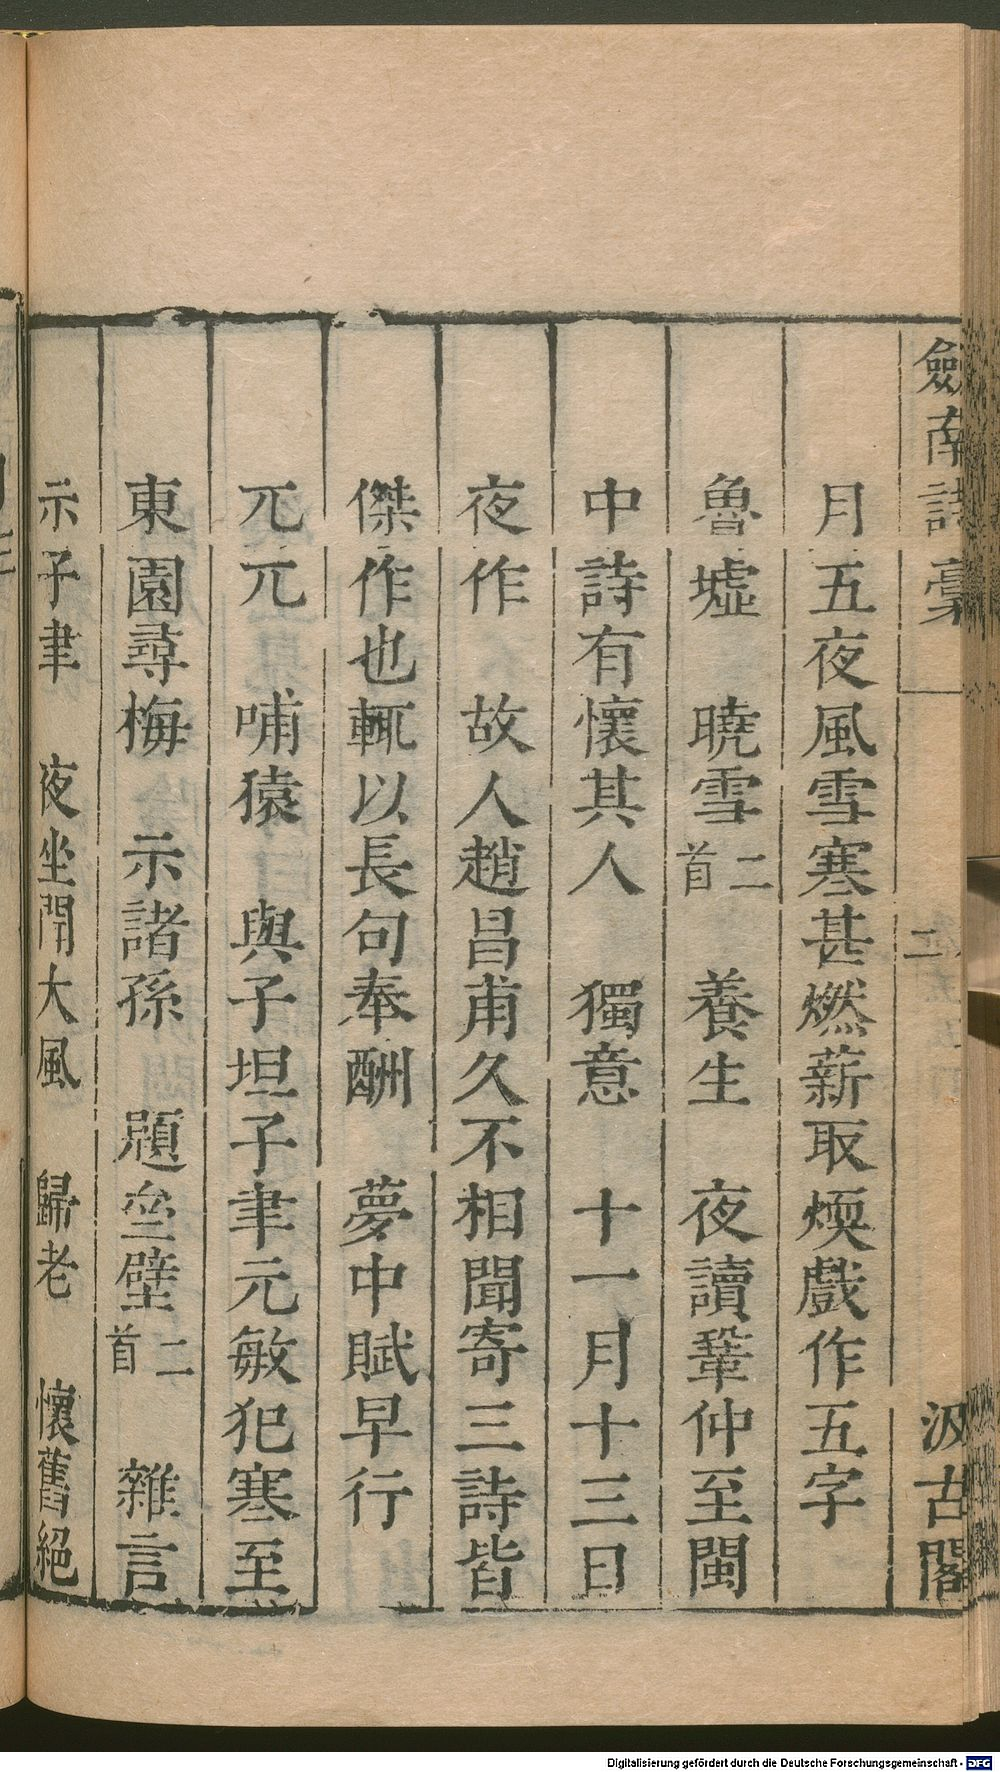 劍南詩稾
二
汲古閣
月五夜風雪寒甚燃薪取煗戲作五字
魯墟　曉雪二首　養生　夜讀鞏仲至閩
中詩有懷其人　獨意　十一月十三日
夜作　故人趙昌甫久不相聞寄三詩皆
傑作也輒以長句奉酬　夢中賦早行
兀兀　哺猿　與子坦子聿元敏犯寒至
東園尋梅　示諸孫　題𡋲壁二首　雜言
示子聿　夜坐聞大風　歸老　懷舊絕
Digitalisierung gefördert durch die Deutsche Forschungsgemeinschaft - DFG